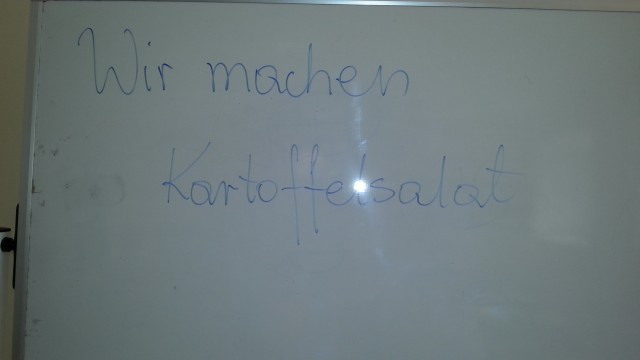 Wir machen
Kartoffelsalat